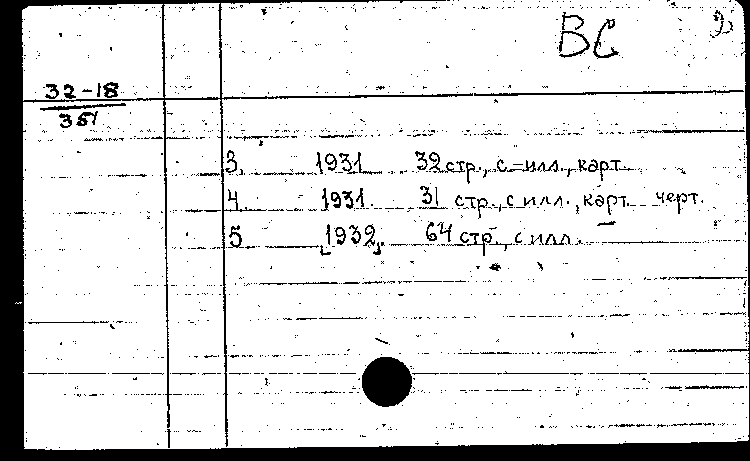 ВС 2)
32-18
351
3. 1931 32 стр., с-илл., карт.
4. 1931. 31 стр., с илл., карт. черт.
5. [1932]. 64 стр., с илл.